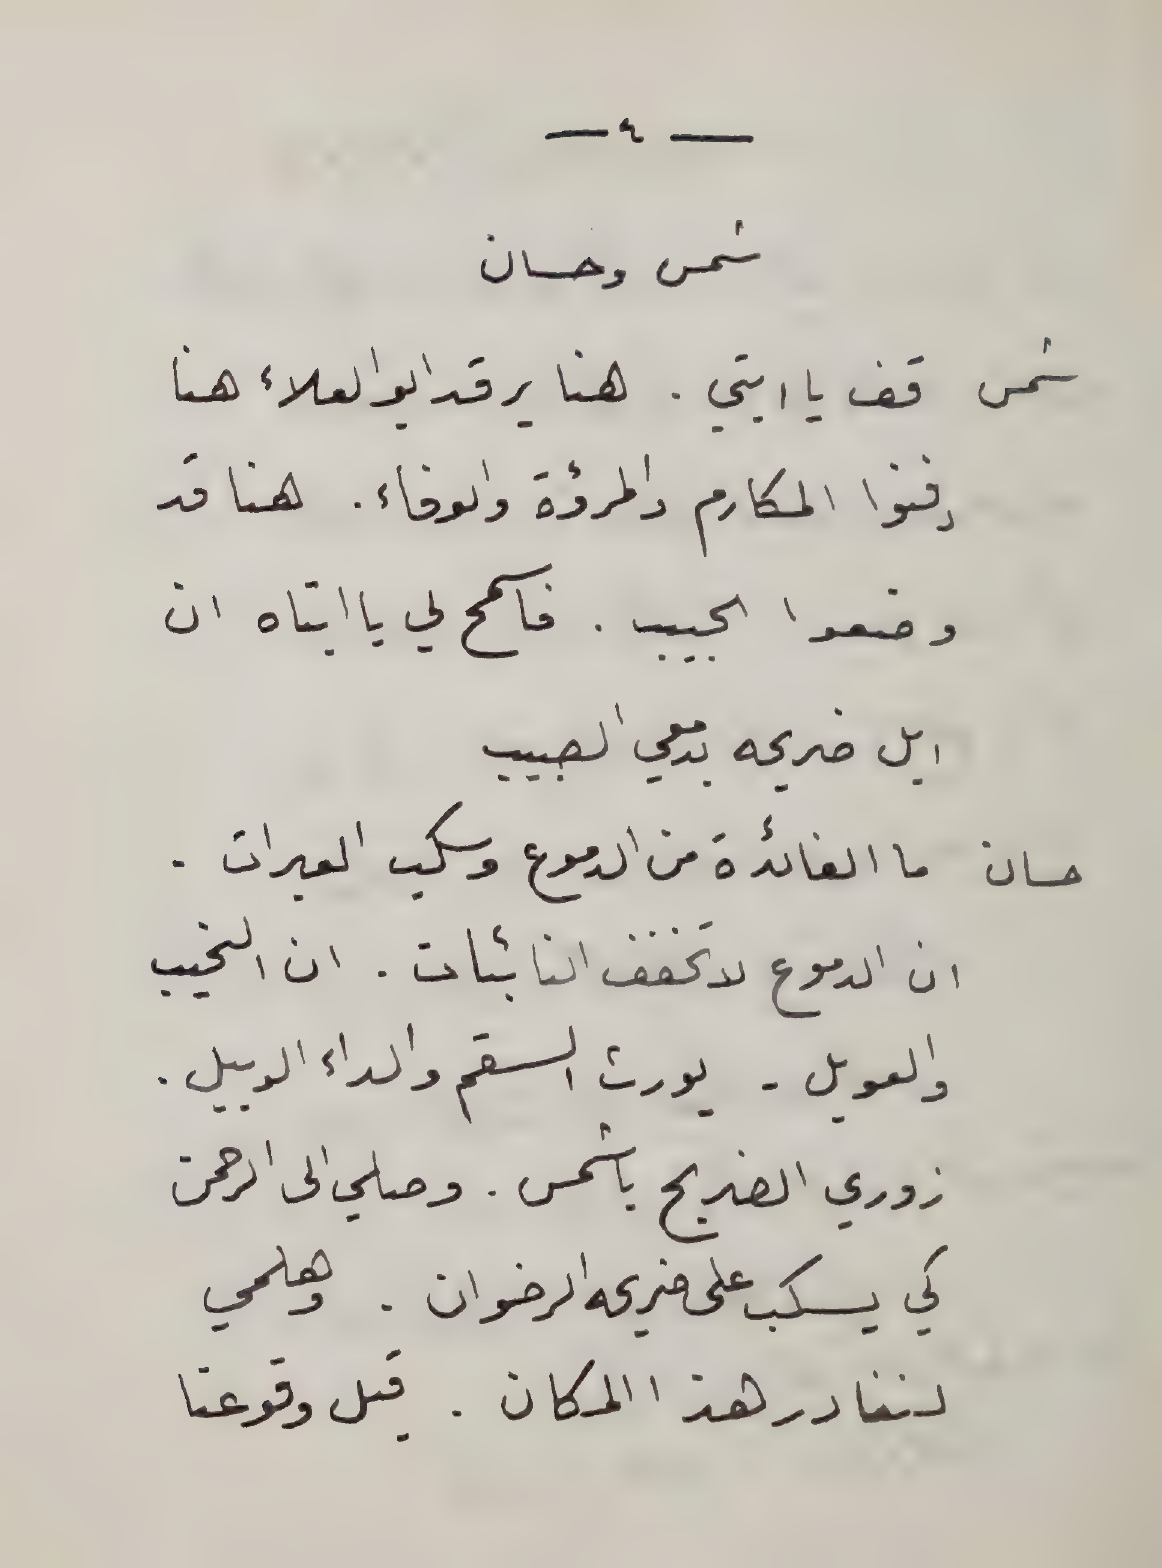 — ٤ —
شمس وحسان
شمس قف يا ابتي . هنا يرقد ابو العلاء هنا
دفنوا المكارم والمرؤة والوفاء . هنا قد
وضعوا الحبيب . فاسمح لي يا ابتاه ان
ابل ضريحه بدمعي الصبيب
حسان ما الفائدة من الدموع وسكب العبرات .
ان الدموع لا تخفف النائبات . ان النحيب
والعويل - يورث السقم والداء الوبيل .
زوري الضريح يا شمس . وصلي الى الرحمن
كي يسكب على ضريحه الرضوان . وهلمي
لنغادر هذا المكان . قبل وقوعنا